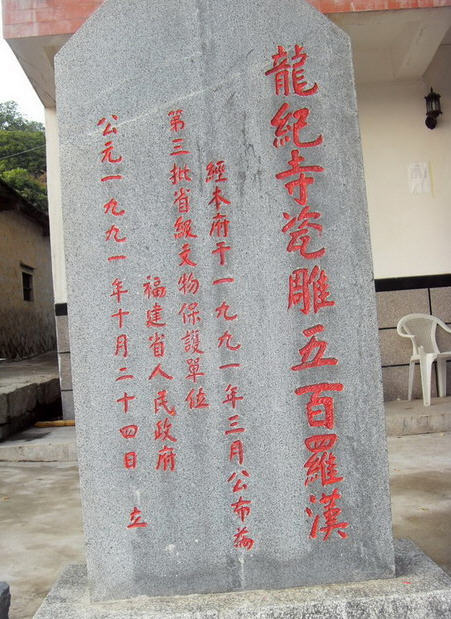 龍紀寺瓷雕五百羅漢
經本府于一九九一年三月公布為
第三批省級文物保護單位
福建省人民政府
公元一九九一年十月二十四日 立